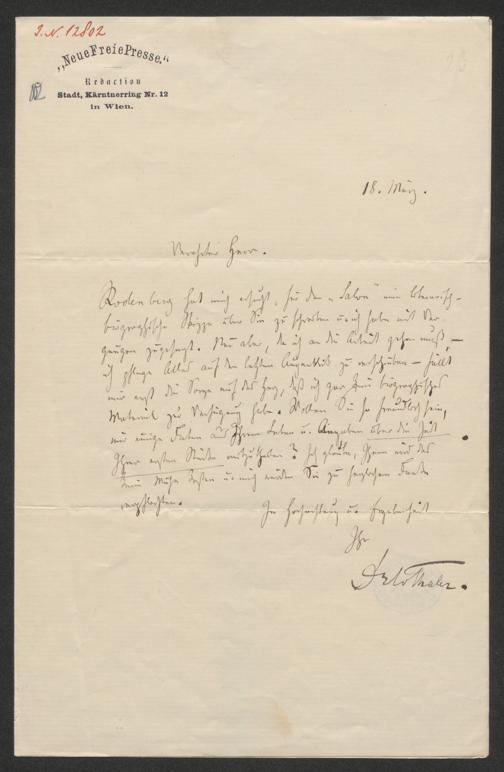 J. N. 12802
„Neue Freie Presse.“
Redaction
Stadt, Kärntnerring Nr. 12
in Wien.
18. März.
Verehrter Herr.
Rodenberg hat mich ersucht, für den „Salon“ eine literarisch-
biographische Skizze über Sie zu schreiben u. ich habe mit Ver-
gnügen zugesagt. Nun aber, da ich an die Arbeit gehen muß, —
ich pflege Alles auf den letzten Augenblick zu verschieben — fällt
mir erst die Sorge auf das Herz, daß ich gar kein biographisches
Material zur Verfügung habe. Wollen Sie so freundlich sein,
mir einige Daten aus Ihrem Leben u. Angaben über die Zeit
Ihrer ersten Stücke mitzutheilen? Ich glaube, Ihnen wird das
keine Mühe kosten u. mich würden Sie zu herzlichem Danke
verpflichten.
In Hochachtung u. Ergebenheit
Ihr
Thaler.